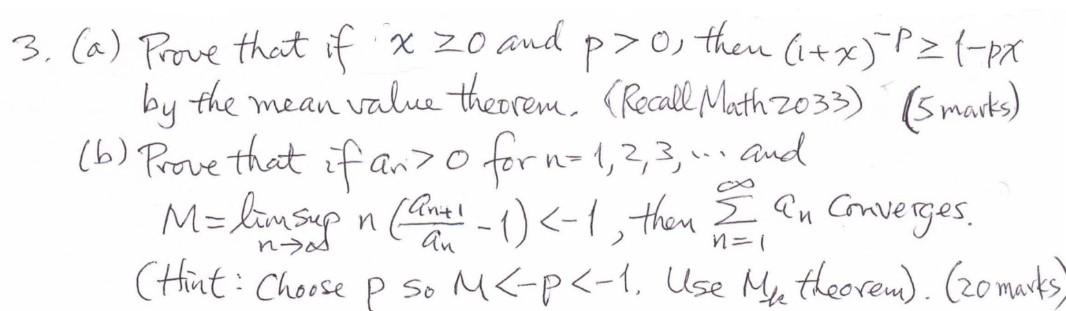 3. (a) Prove that if x ≥ 0 and p > 0, then (1+x)^{-p} ≥ 1-px
by the mean value theorem. (Recall Math 2033) (5 marks)
(b) Prove that if a_n > 0 for n = 1, 2, 3, ... and
M = limsup_{n→∞} n (a_{n+1}/a_n - 1) < -1, then ∑_{n=1}^{∞} a_n Converges.
(Hint: Choose p so M < -p < -1. Use M_k theorem). (20 marks)